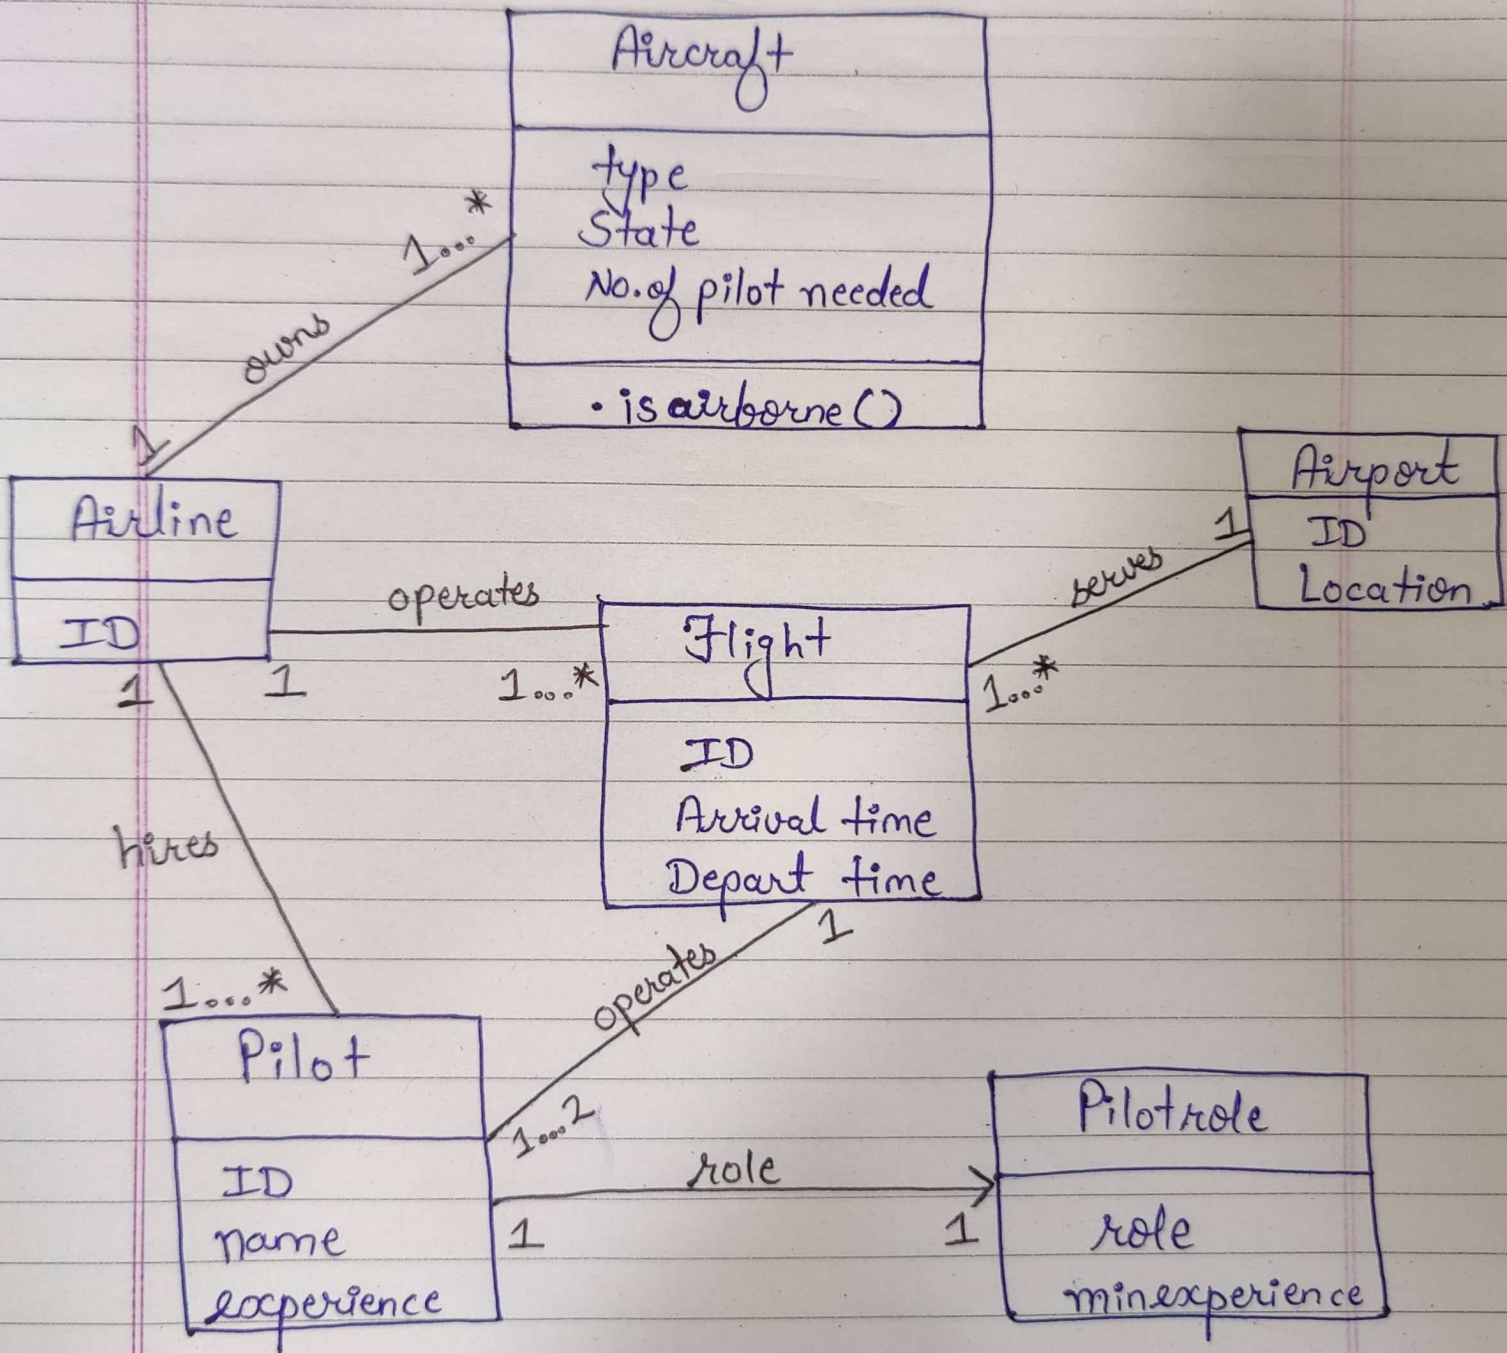 Aircraft
type
State
No. of pilot needed
. is airborne ()
1...*
owns
1
Airline
ID
1
1
operates
1...*
Flight
ID
Arrival time
Depart time
1...*
serves
1
Airport
ID
Location
hires
1...*
Pilot
ID
name
experience
1
operates
1...2
role
1
1
Pilotrole
role
minexperience